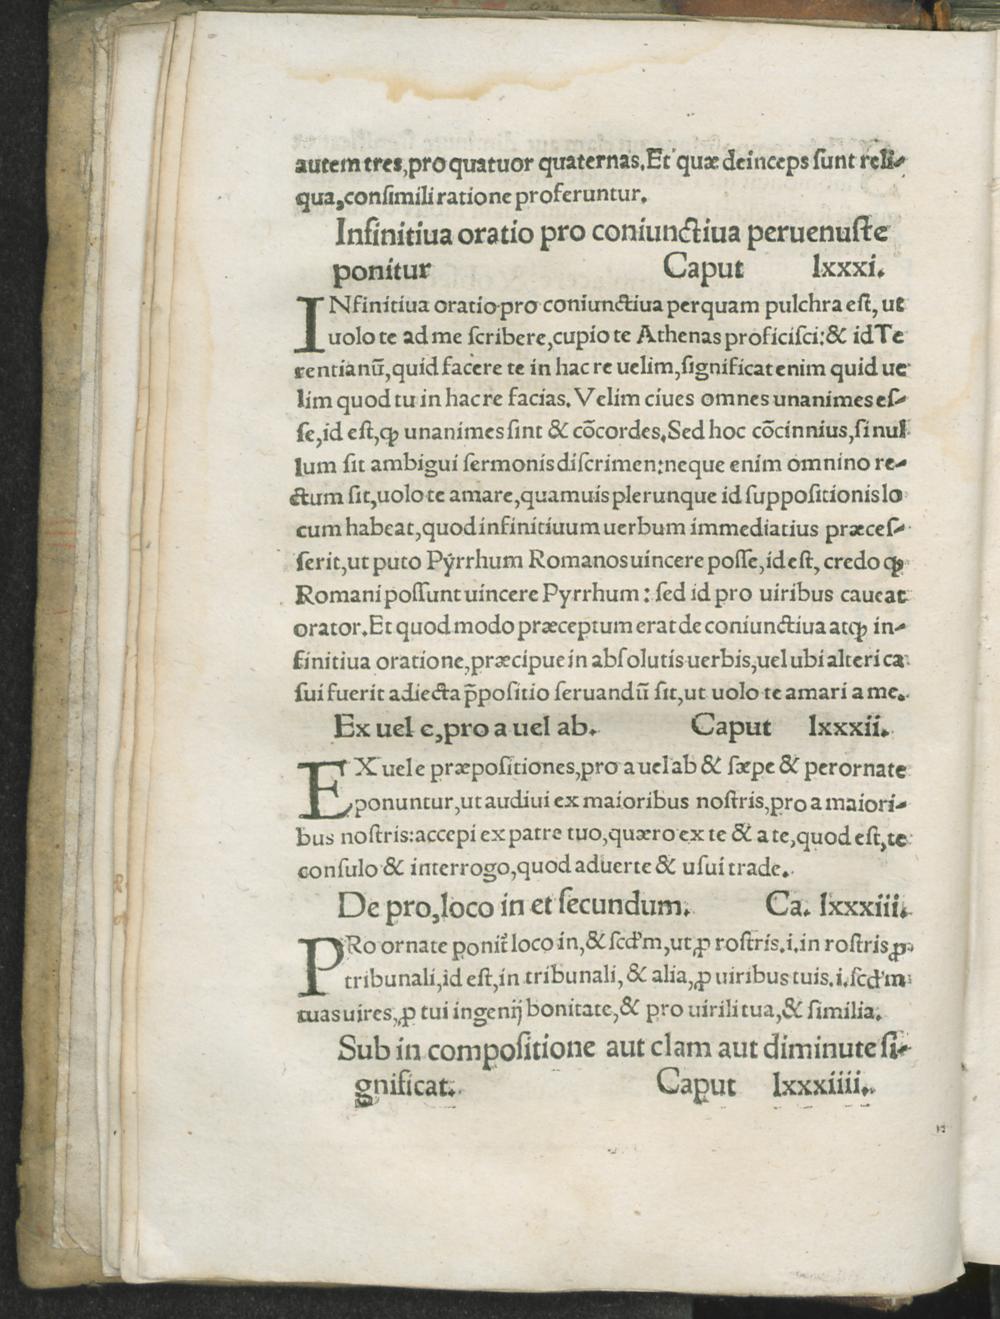 autem tres, pro quatuor quaternas. Et quæ deinceps ſunt reli-
qua, conſimili ratione proferuntur.
Infinitiua oratio pro coniunctiua peruenuſte
ponitur Caput lxxxi.
INfinitiua oratio pro coniunctiua perquam pulchra eſt, ut
uolo te ad me ſcribere, cupio te Athenas proficiſci: & id Te
rentianū, quid facere te in hac re uelim, ſignificat enim quid ue
lim quod tu in hac re facias. Velim ciues omnes unanimes eſ-
ſe, id eſt, ꝙ unanimes ſint & cōcordes. Sed hoc cōcinnius, ſi nul
lum ſit ambigui ſermonis diſcrimen: neque enim omnino re-
ctum ſit, uolo te amare, quamuis plerunque id ſuppoſitionis lo
cum habeat, quod infinitiuum uerbum immediatius præceſ-
ſerit, ut puto Pyrrhum Romanos uincere poſſe, id eſt, credo ꝙ
Romani poſſunt uincere Pyrrhum: ſed id pro uiribus caueat
orator. Et quod modo præceptum erat de coniunctiua atqꝫ in-
finitiua oratione, præcipue in abſolutis uerbis, uel ubi alteri ca
ſui fuerit adiecta p̄poſitio ſeruandū ſit, ut uolo te amari a me.
Ex uel e, pro a uel ab. Caput lxxxii.
EX uel e præpoſitiones, pro a uel ab & ſæpe & perornate
ponuntur, ut audiui ex maioribus noſtris, pro a maiori-
bus noſtris: accepi ex patre tuo, quæro ex te & a te, quod eſt, te
conſulo & interrogo, quod aduerte & uſui trade.
De pro, loco in et ſecundum. Ca. lxxxiii.
PRo ornate ponit̃ loco in, & ſcd'm, ut ꝓ roſtris. i. in roſtris ꝓ
tribunali, id eſt, in tribunali, & alia, ꝓ uiribus tuis. i. ſcd'm
tuas uires, ꝓ tui ingenij bonitate, & pro uirili tua, & ſimilia.
Sub in compoſitione aut clam aut diminute ſi-
gnificat. Caput lxxxiiii.